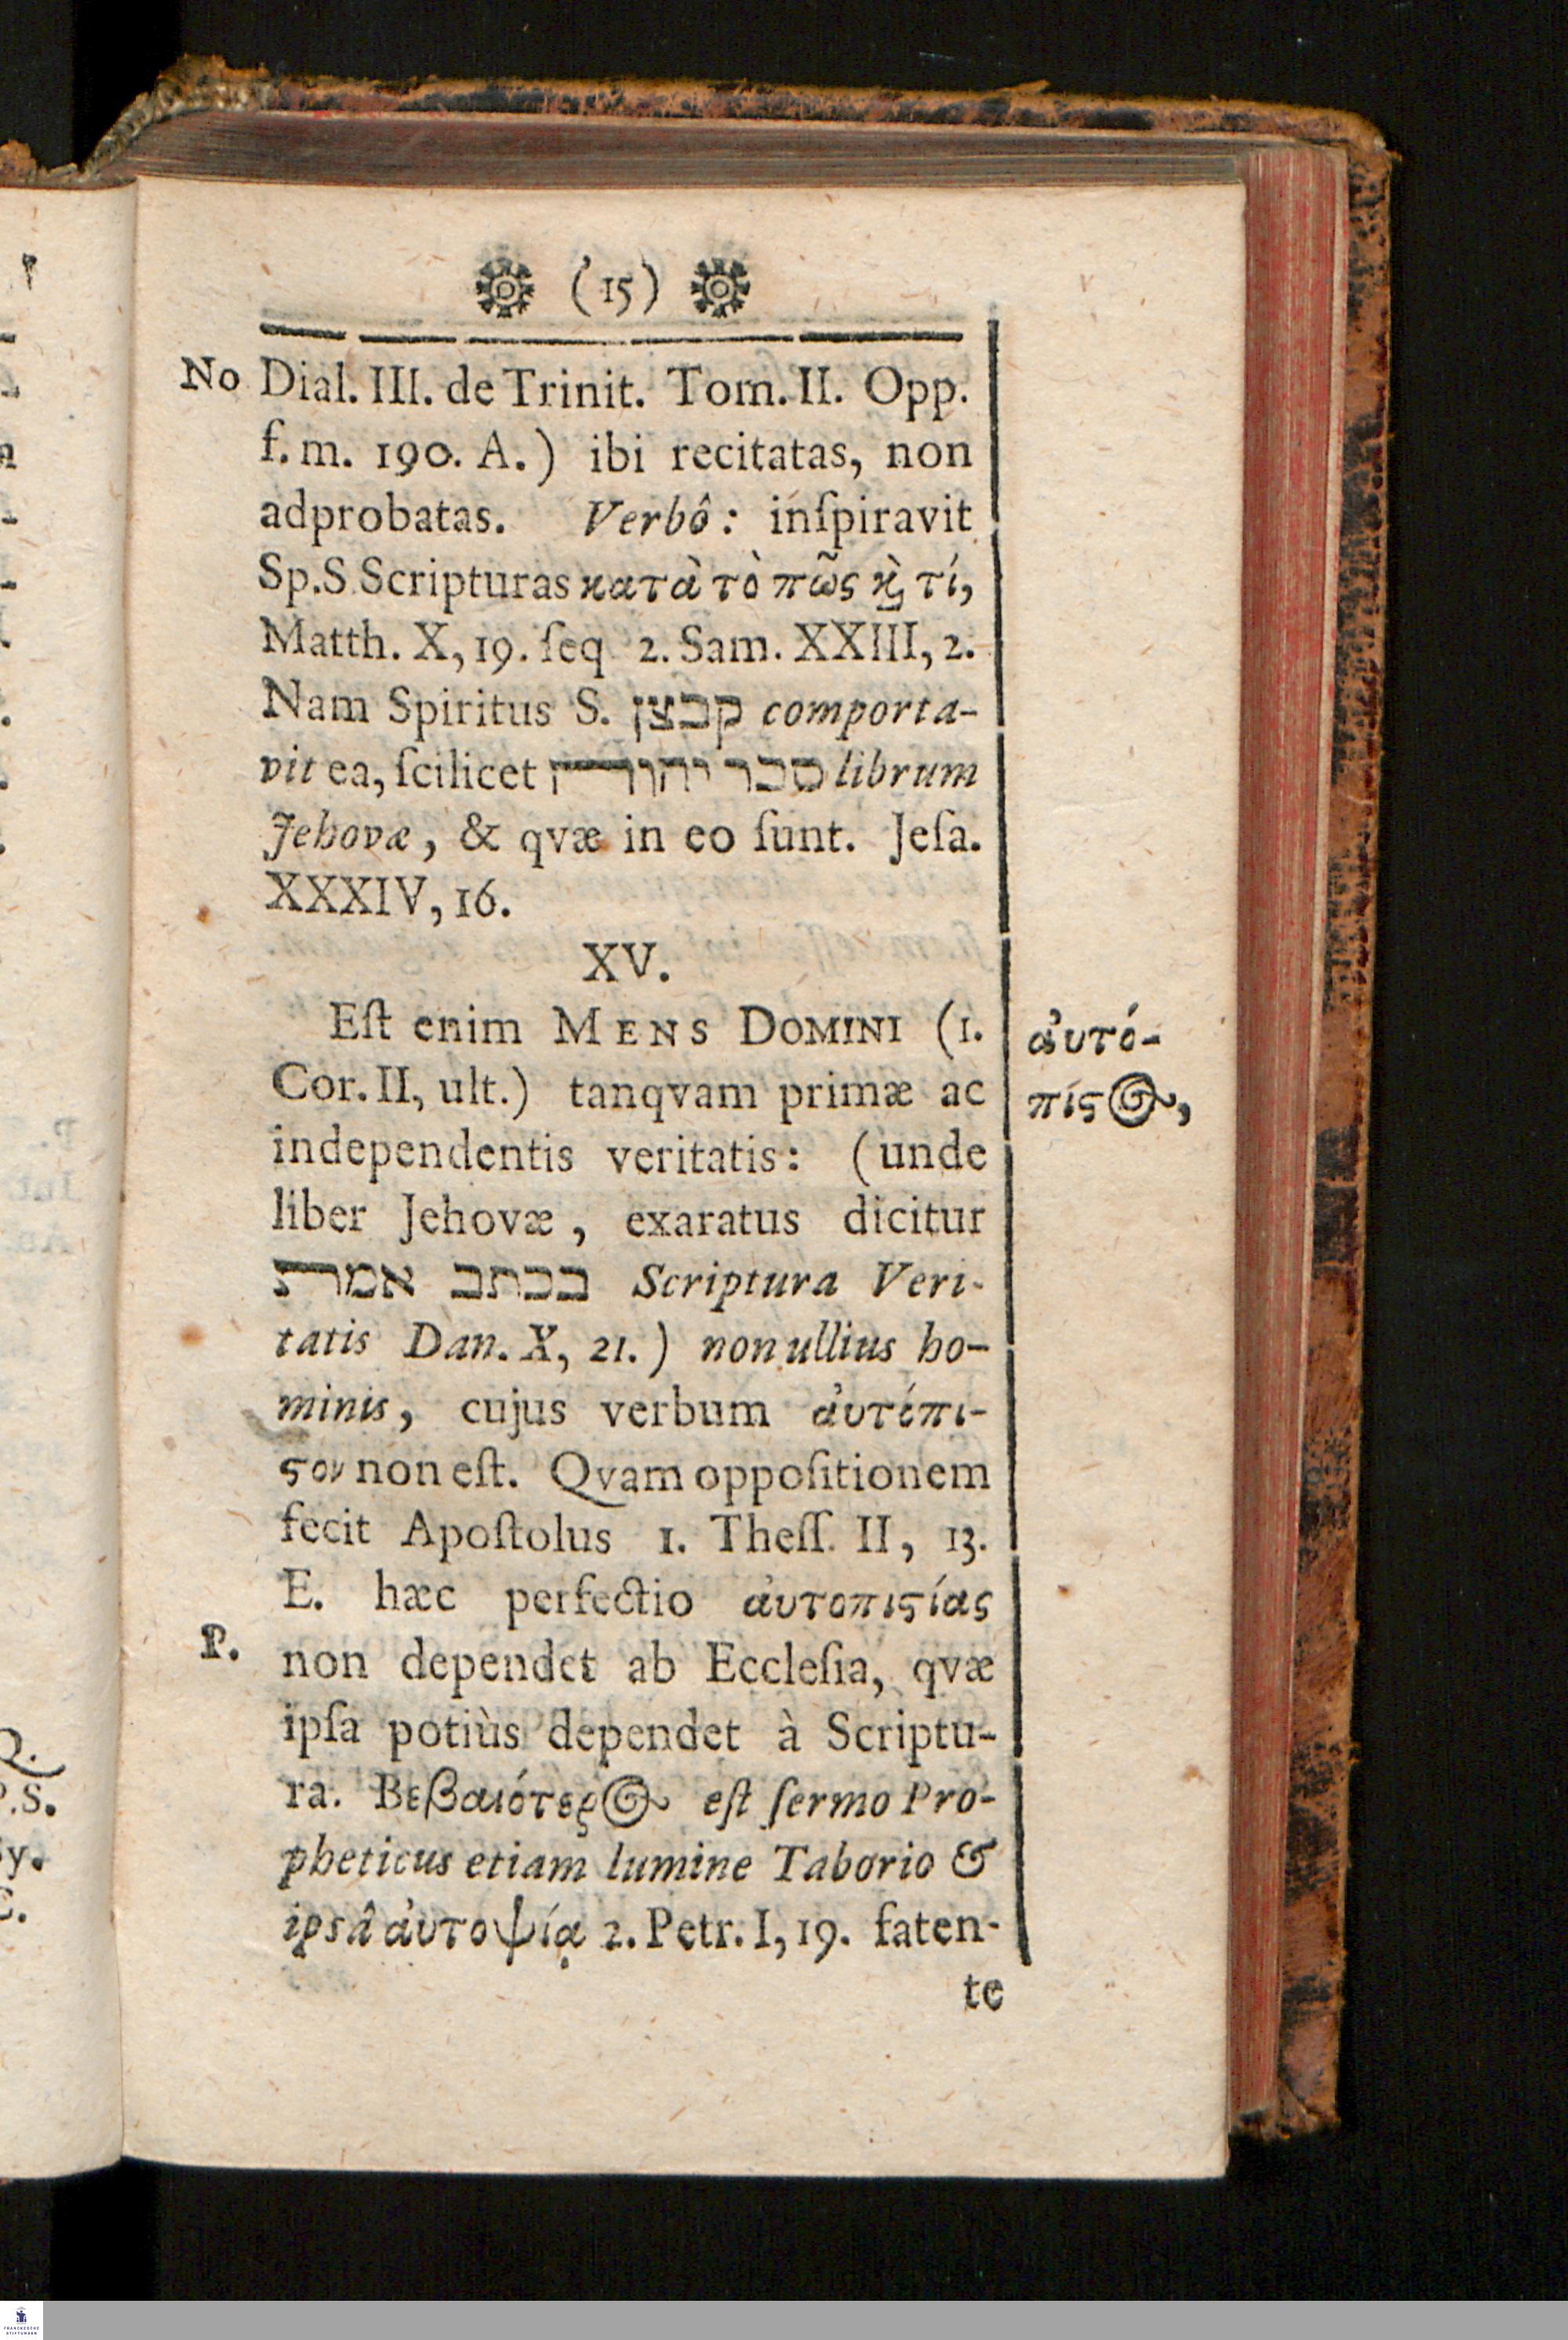 (15)
No Dial. III. de Trinit. Tom. II. Opp.
f. m. 190. A.) ibi recitatas, non
adprobatas. Verbô: inſpiravit
Sp. S. Scripturas κατὰ τὸ πῶς ϗ̀ τί,
Matth. X, 19. ſeq 2. Sam. XXIII, 2.
Nam Spiritus S. קבצן comporta-
vit ea, ſcilicet ספר יהוה librum
Jehovæ, & qvæ in eo ſunt. Jeſa.
XXXIV, 16.
XV.
Eſt enim MENS DOMINI (1.
Cor. II, ult.) tanqvam primæ ac
independentis veritatis: (unde
liber Jehovæ, exaratus dicitur
בכתב אמת Scriptura Veri-
tatis Dan. X, 21.) non ullius ho-
minis, cujus verbum ἀυτόπι-
ϛον non eſt. Qvam oppoſitionem
fecit Apoſtolus 1. Theſſ. II, 13.
E. hæc perfectio ἀυτοπιϛίας
P. non dependet ab Eccleſia, qvæ
ipſa potiùs dependet à Scriptu-
ra. Βεβαιότερος eſt ſermo Pro-
pheticus etiam lumine Taborio &
ipsâ ἀυτοψίᾳ 2. Petr. I, 19. faten-
te
ἀυτό-
πιϛος,
Q.
P.S.
y.
C.
FRANCKESCHE
STIFTUNGEN